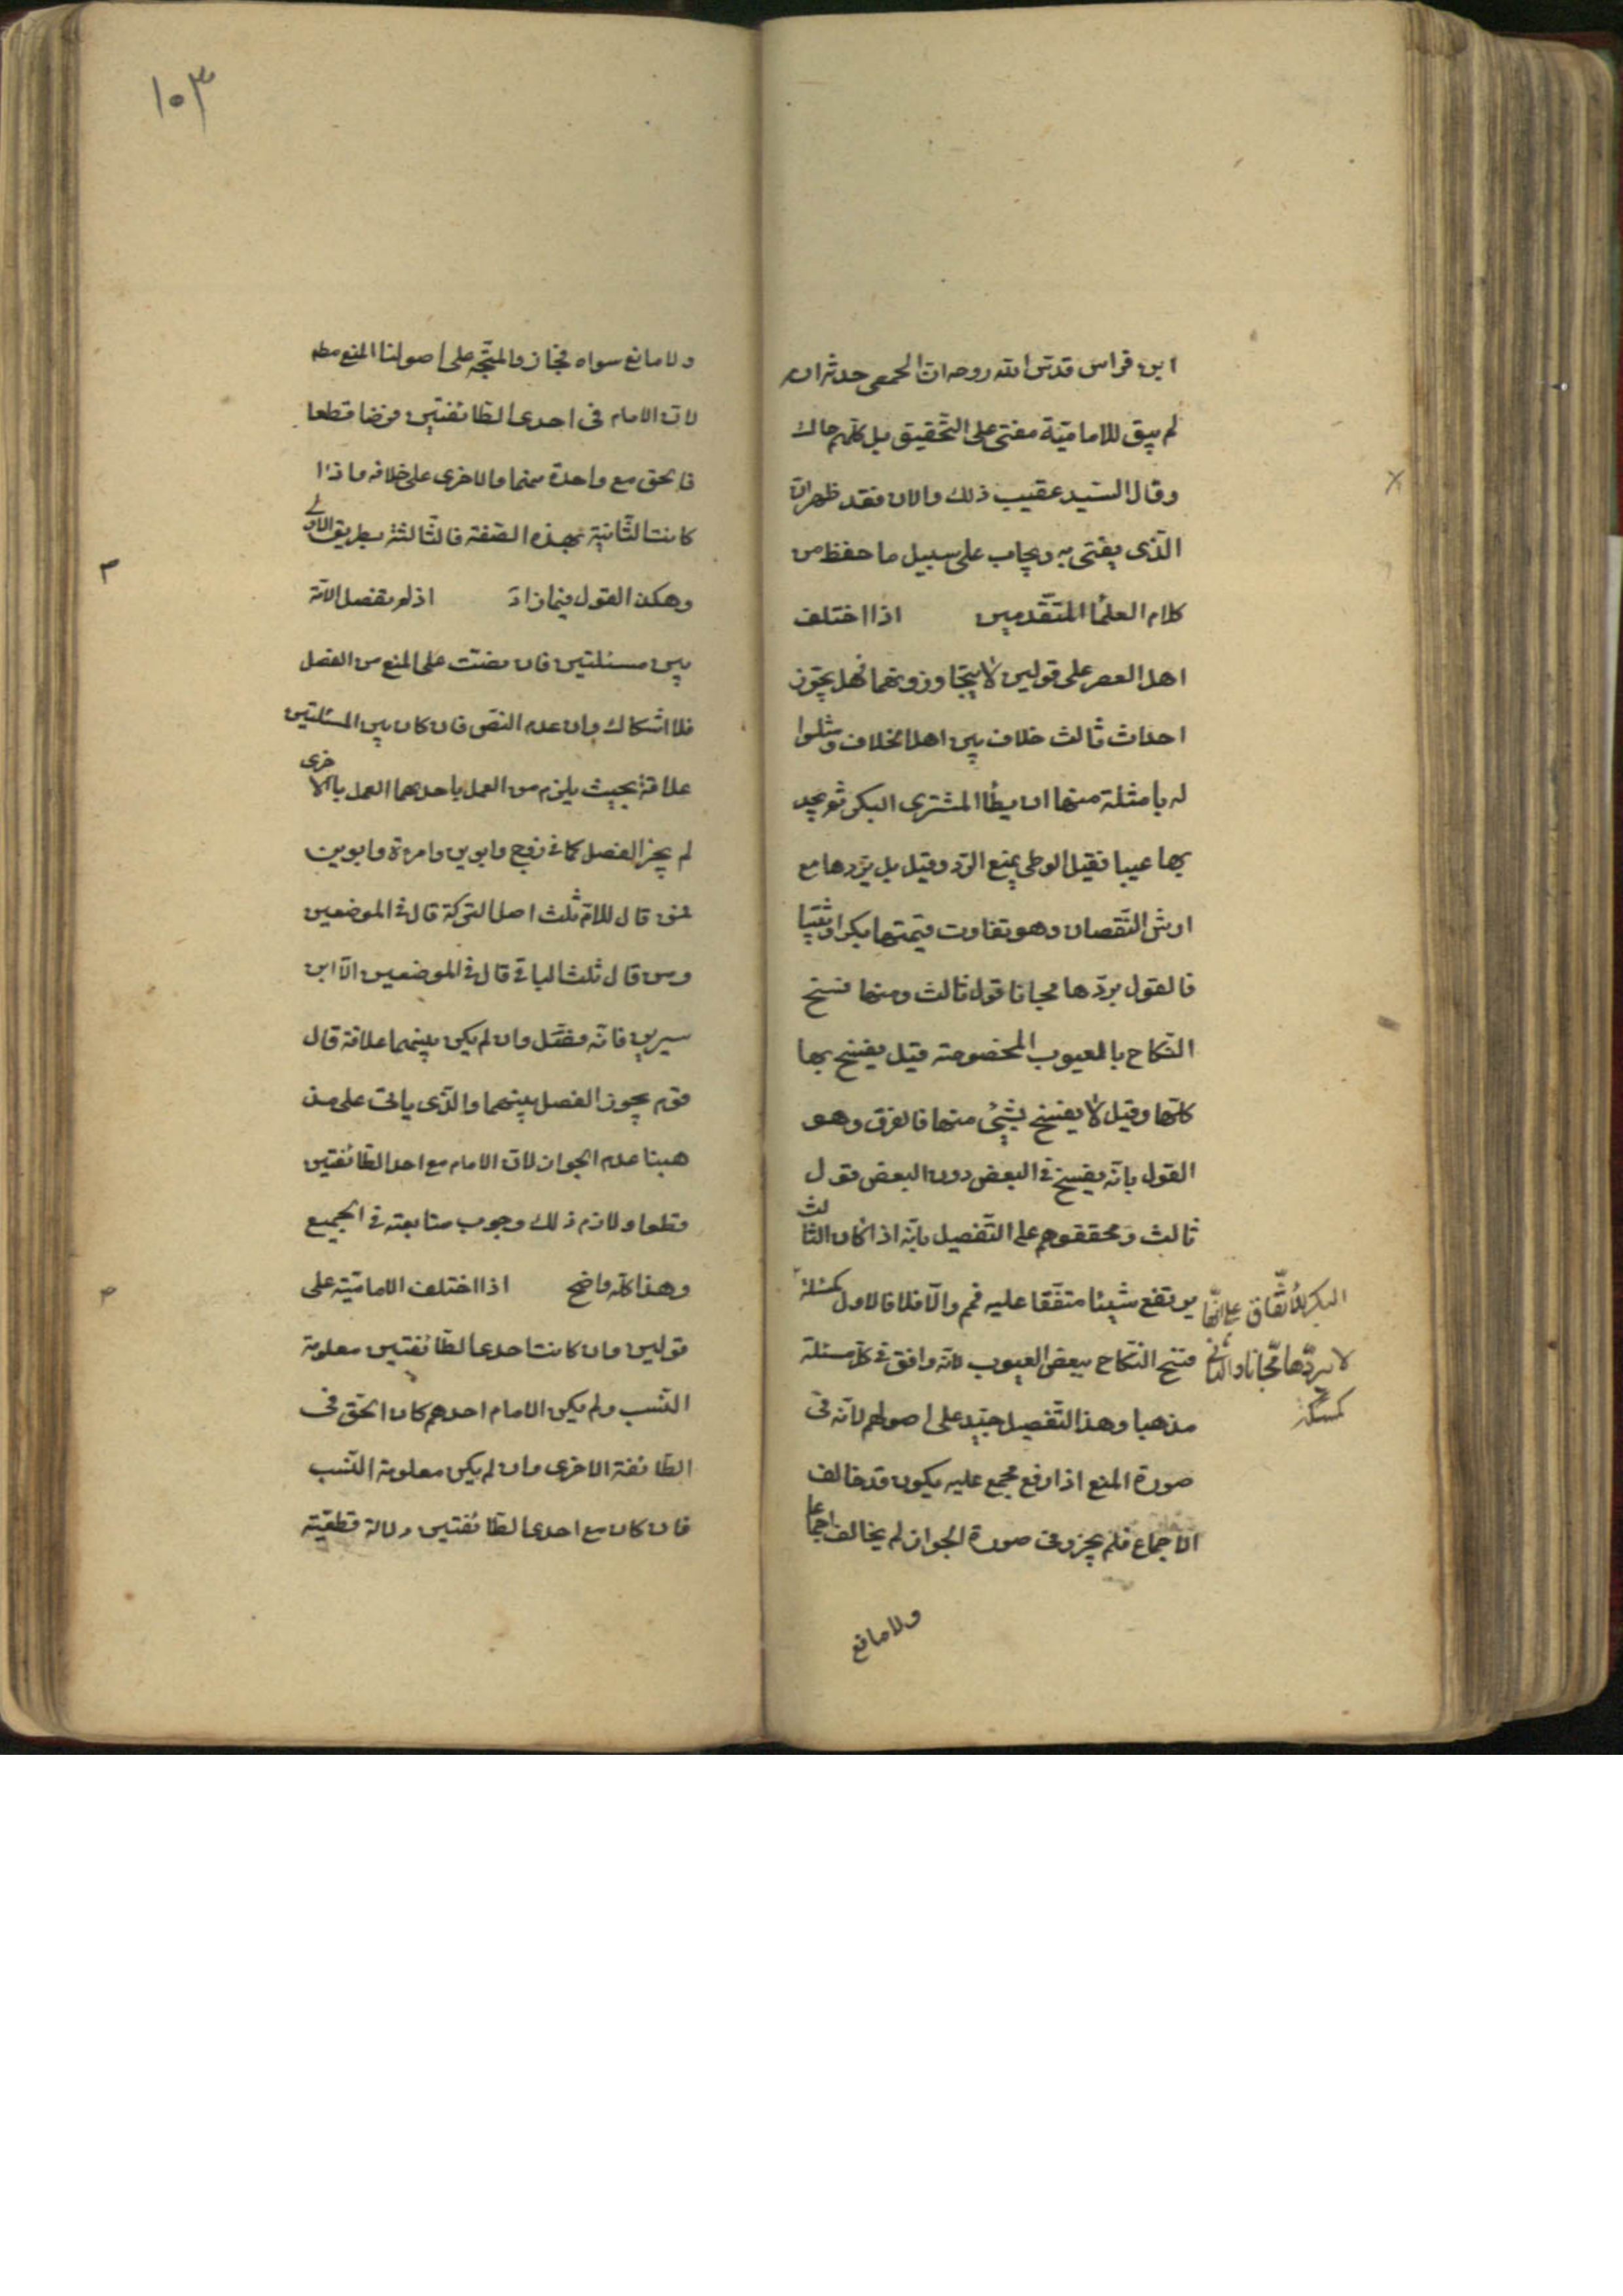 ابن فراس قدس الله روحه ان الحمصى حدثه انه
لم يبق للامامية مفتى على التحقيق بل كلهم حاك
وقال السيد عقيب ذلك والان فقد ظهر ان
الذى يفتى به ويجاب على سبيل ما حفظ من
كلام العلما المتقدمين اذا اختلف
اهل العصر على قولين لا يتجاوزونهما فهل يجوز
احداث ثالث خلاف بين اهل الخلاف ومثلوا
له بامثلة منها ان يطأ المشترى البكر ثم يجد
بها عيبا فقيل الوطى يمنع الرد وقيل بل يردها مع
ارش النقصان وهو تفاوت قيمتها بكرا وثيبا
فالقول بردها مجانا قول ثالث ومنها فسخ
النكاح بالعيوب المخصوصة قيل يفسخ بها
كلها وقيل لا يفسخ بشئ منها فالفرق وهو
القول بانه يفسخ فى البعض دون البعض قول
ثالث ومحققوهم على التفصيل بانه اذا كان الثالث
يرتفع شيئا متفقا عليه فمم والا فلا فالاول كمسئلة
البكر للاتفاق على انها
لا يردها مجانا والثانى
كمسئلة
فسخ النكاح ببعض العيوب لانه وافق فى كل مسئلة
مذهبا وهذا التفصيل جيد على اصولهم لانه فى
صورة المنع اذا رفع مجمع عليه يكون قد خالف
الاجماع فلم يجز وفى صورة الجواز لم يخالف اجماعا
ولا مانع
١٠٣
ولا مانع سواه فجاز والمتجه على اصولنا المنع مطه
لان الامام فى احدى الطائفتين فرضا قطعا
فالحق مع واحدة منهما والاخرى على خلافه واذا
كانت الثانية بهذه الصفة فالثالثة بطريق الاولى
وهكذا القول فيما زاد اذا لم يفصل الامة
بين مسئلتين فان نصت على المنع من الفصل
فلا اشكال وان عدم النص فان كان بين المسئلتين
علاقة بحيث يلزم من العمل باحدهما العمل بالاخرى
لم يجز الفصل كما فى زوج وابوين وامرءة وابوين
فمن قال للام ثلث اصل التركة قال فى الموضعين
ومن قال ثلث الباقى قال فى الموضعين الا ابن
سيرين فانه فصل وان لم يكن بينهما علاقة قال
قوم يجوز الفصل بينهما والذى ياتى على مذ
هبنا عدم الجواز لان الامام مع احد الطائفتين
قطعا ولازم ذلك وجوب متابعته فى الجميع
وهذا كله واضح اذا اختلف الامامية على
قولين وان كانت احدى الطائفتين معلومة
النسب ولم يكن الامام احدهم كان الحق فى
الطائفة الاخرى وان لم يكن معلومة النسب
فان كان مع احدى الطائفتين دلالة قطعية